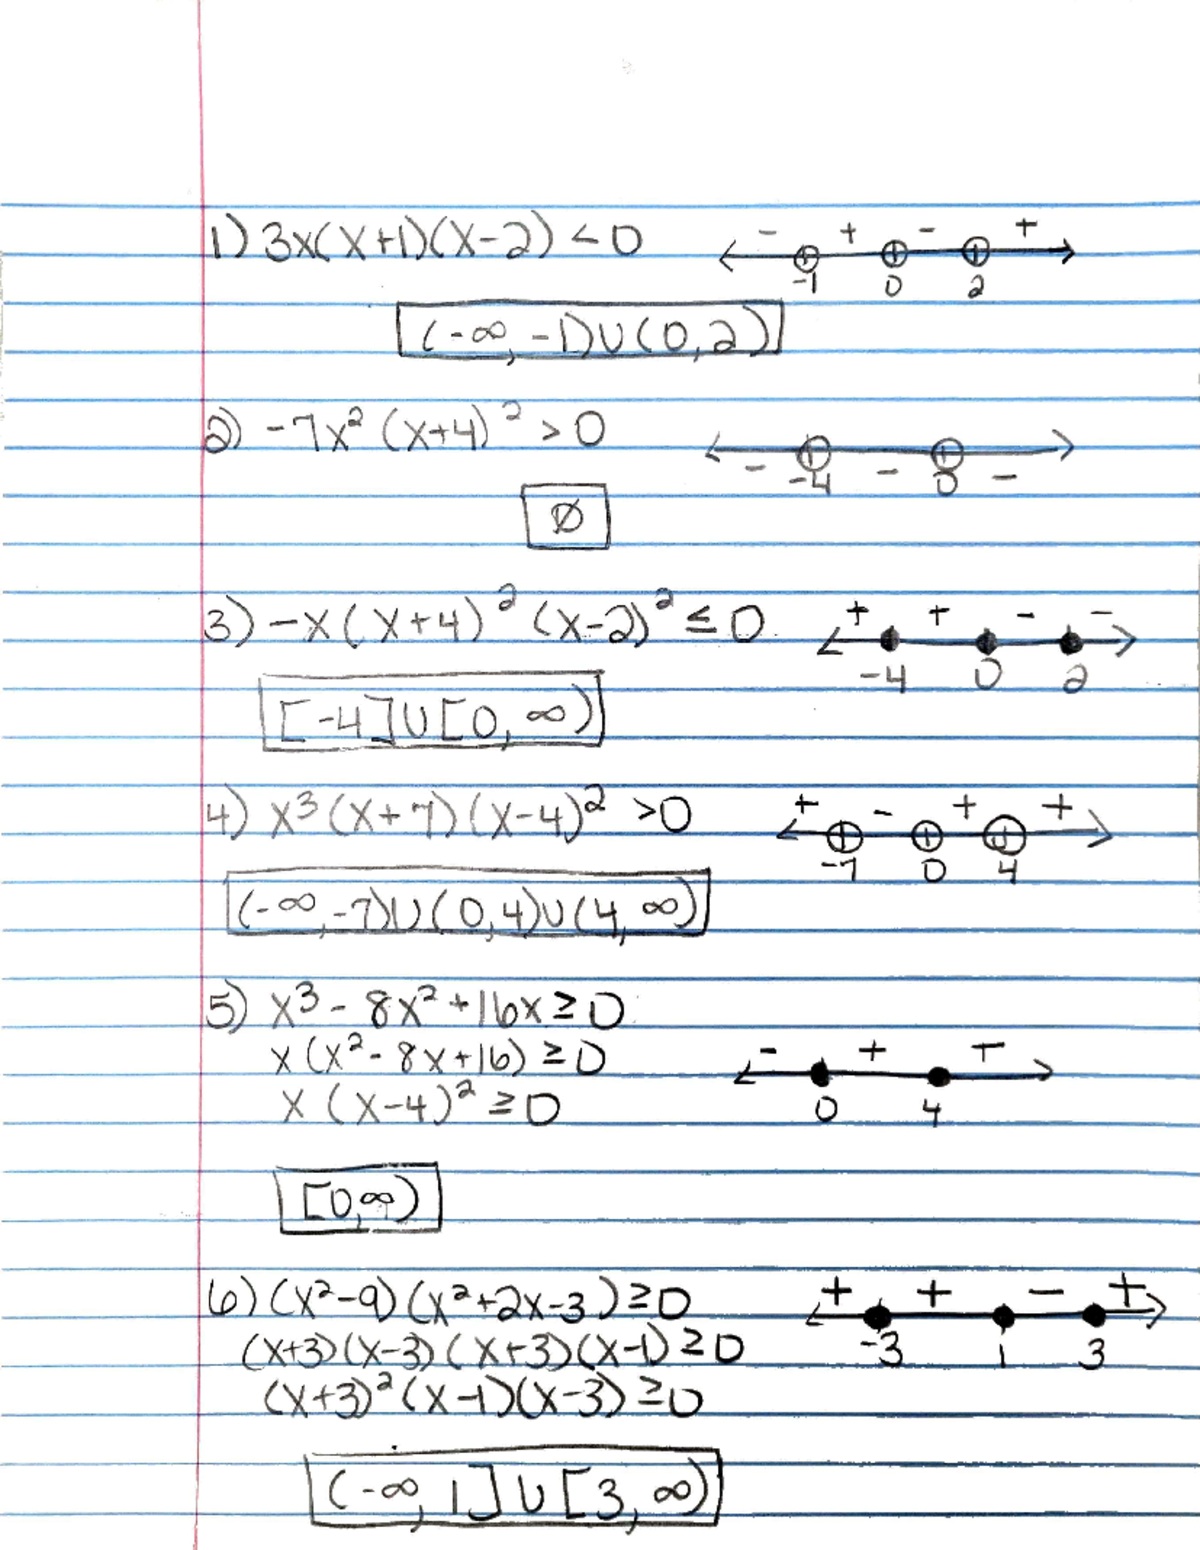 1) 3x(x+1)(x-2) < 0
- + - +
-1 0 2
(-∞, -1)∪(0,2)
2) -7x² (x+4)² > 0
- - -
-4 0
Ø
3) -x(x+4)² (x-2)² ≤ 0
+ + - -
-4 0 2
[-4]∪[0, ∞)
4) x³(x+7)(x-4)² >0
+ - + +
-7 0 4
(-∞,-7)∪(0,4)∪(4, ∞)
5) x³- 8x²+16x ≥ 0
x(x²-8x+16) ≥ 0
x(x-4)² ≥ 0
- + +
0 4
[0,∞)
6) (x²-9)(x²+2x-3) ≥ 0
(x+3)(x-3)(x+3)(x-1) ≥ 0
(x+3)²(x-1)(x-3) ≥ 0
+ + - +
-3 1 3
(-∞, 1] ∪ [3, ∞)